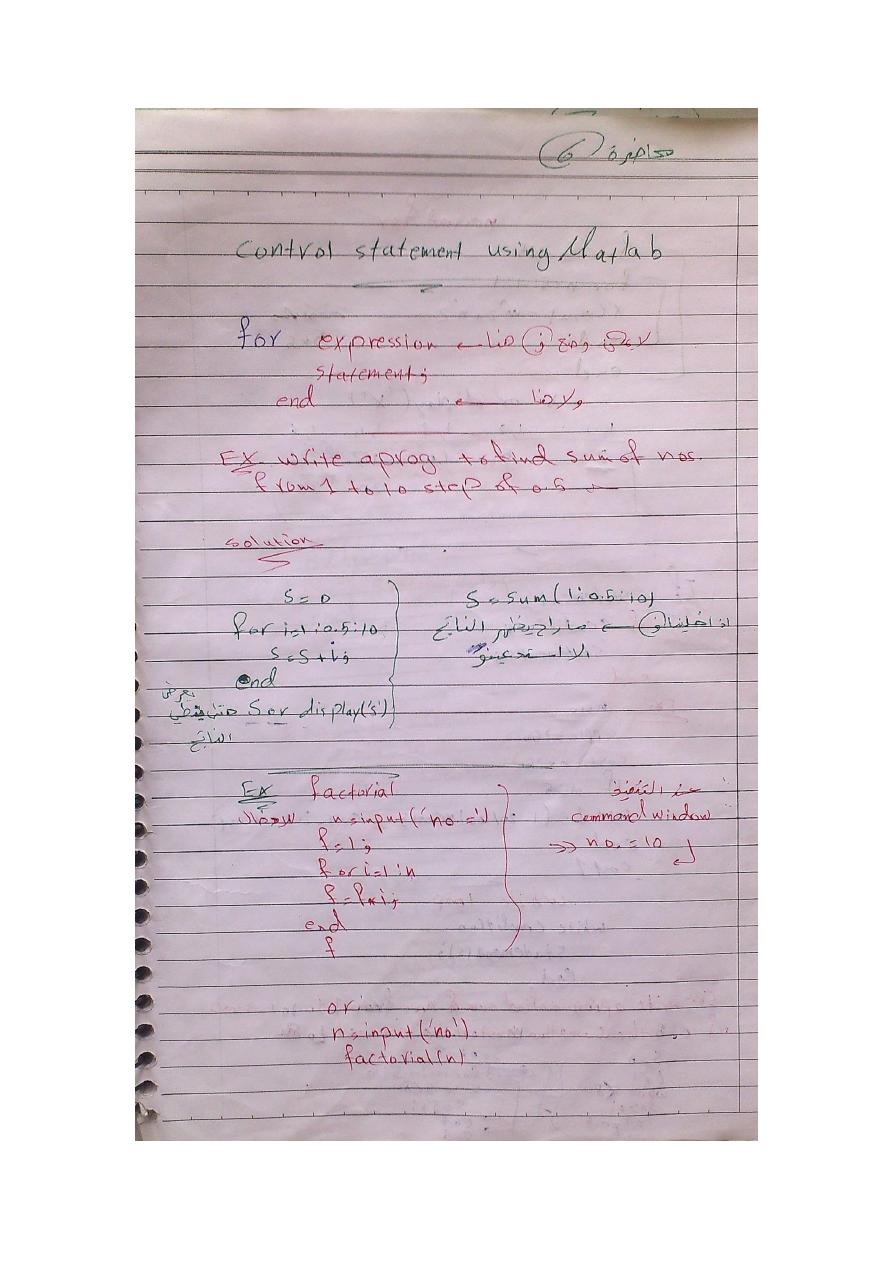 محاضرة 6
Control statement using Matlab
for expression ← لا يمكن وضع ; هنا
statement;
end ← ولا هنا
EX write a prog to find sum of nos.
from 1 to 10 step of 0.5
solution
S=0
for i=1:0.5:10
S=S+i;
end
S or display('s') يعرض حتى ينطي
الناتج
S=sum(1:0.5:10)
اذا خلينا ; ما راح يظهر الناتج
الا استدعينو
EX factorial
n=input('no=')
f=1;
for i=1:n
f=f*i;
end
f
عند التنفيذ
command window
>> no.=10
or
n=input('no').
factorial(n)